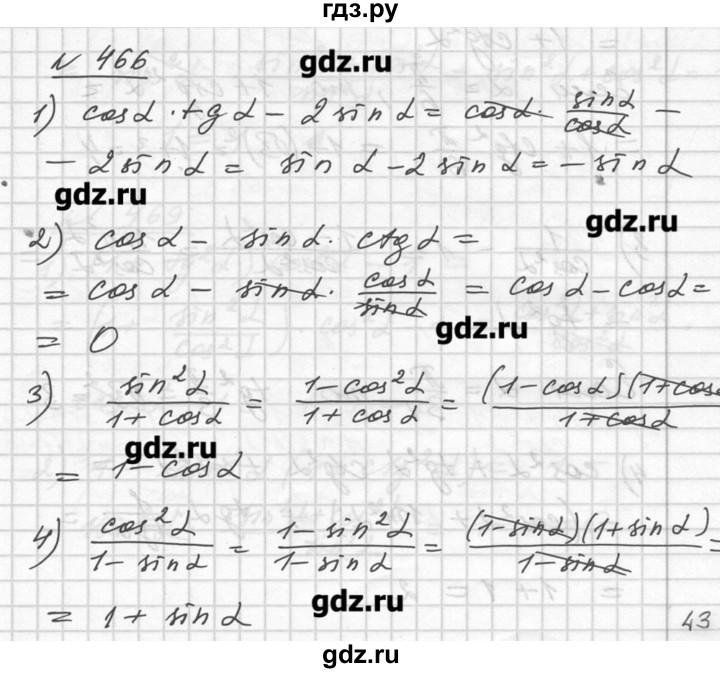 гдз.ру
N 466
gdz.ru
1) cos α · tg α − 2 sin α = cos α · sin α / cos α −
− 2 sin α = sin α − 2 sin α = − sin α
gdz.ru
gdz.ru
2) cos α − sin α · ctg α =
= cos α − sin α · cos α / sin α = cos α − cos α =
gdz.ru
= 0
3) sin² α / 1 + cos α = 1 − cos² α / 1 + cos α = (1 − cos α)(1 + cos / 1 + cos α
gdz.ru
= 1 − cos α
4) cos² α / 1 − sin α = 1 − sin² α / 1 − sin α = (1 − sin α)(1 + sin α) / 1 − sin α =
gdz.ru
= 1 + sin α
43
gdz.ru